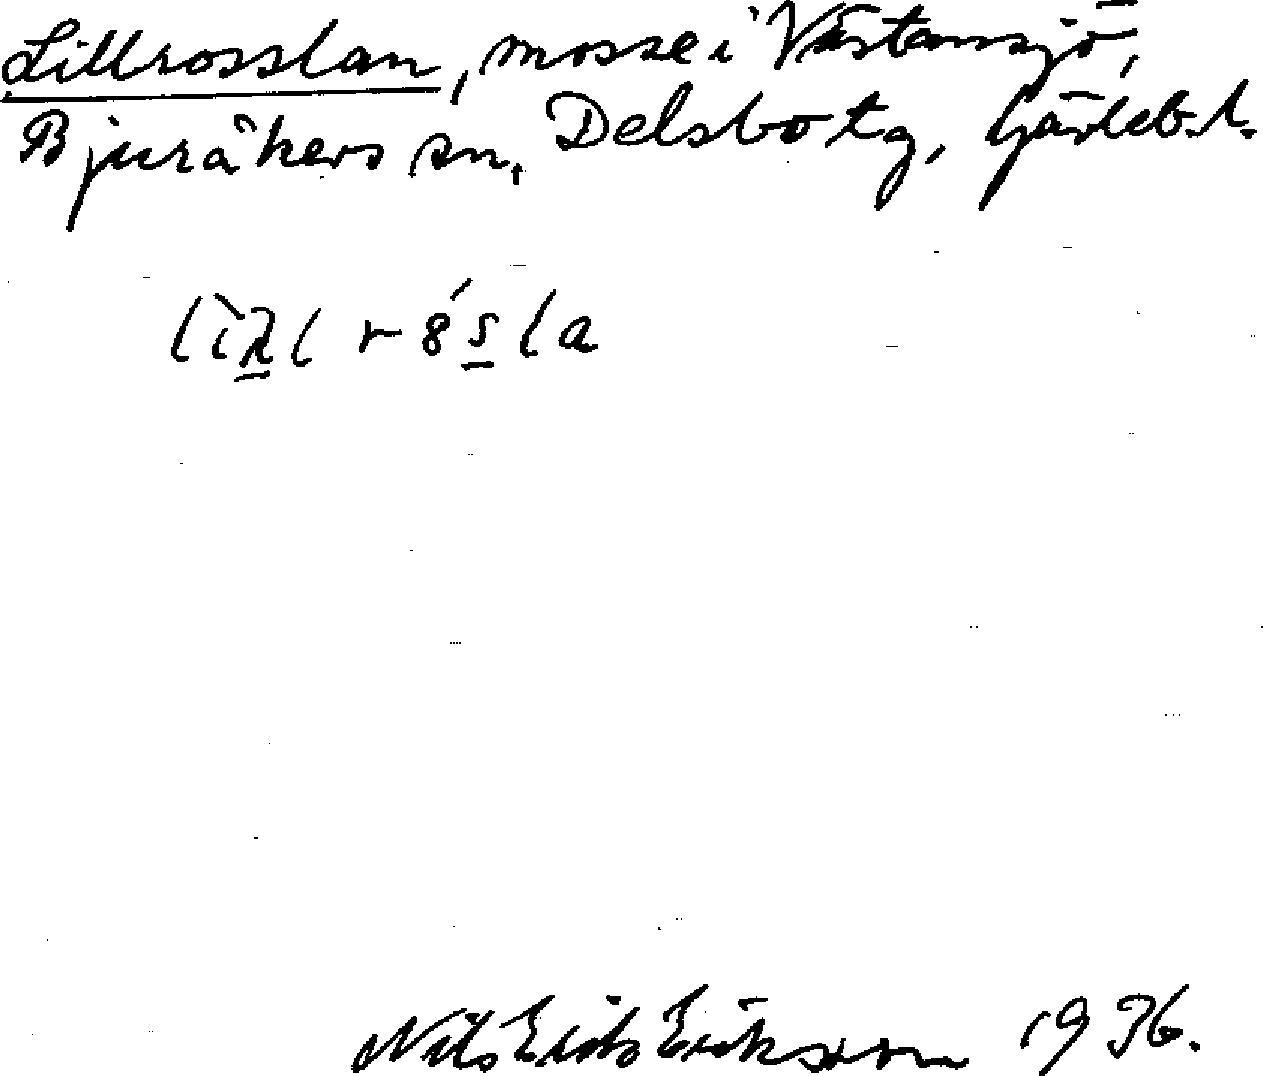 Lillrosslan, mosse i Västansjö,
Bjuråkers sn, Delsbo tg, Gävleb. l.
Nils Erik Eriksson 1936.